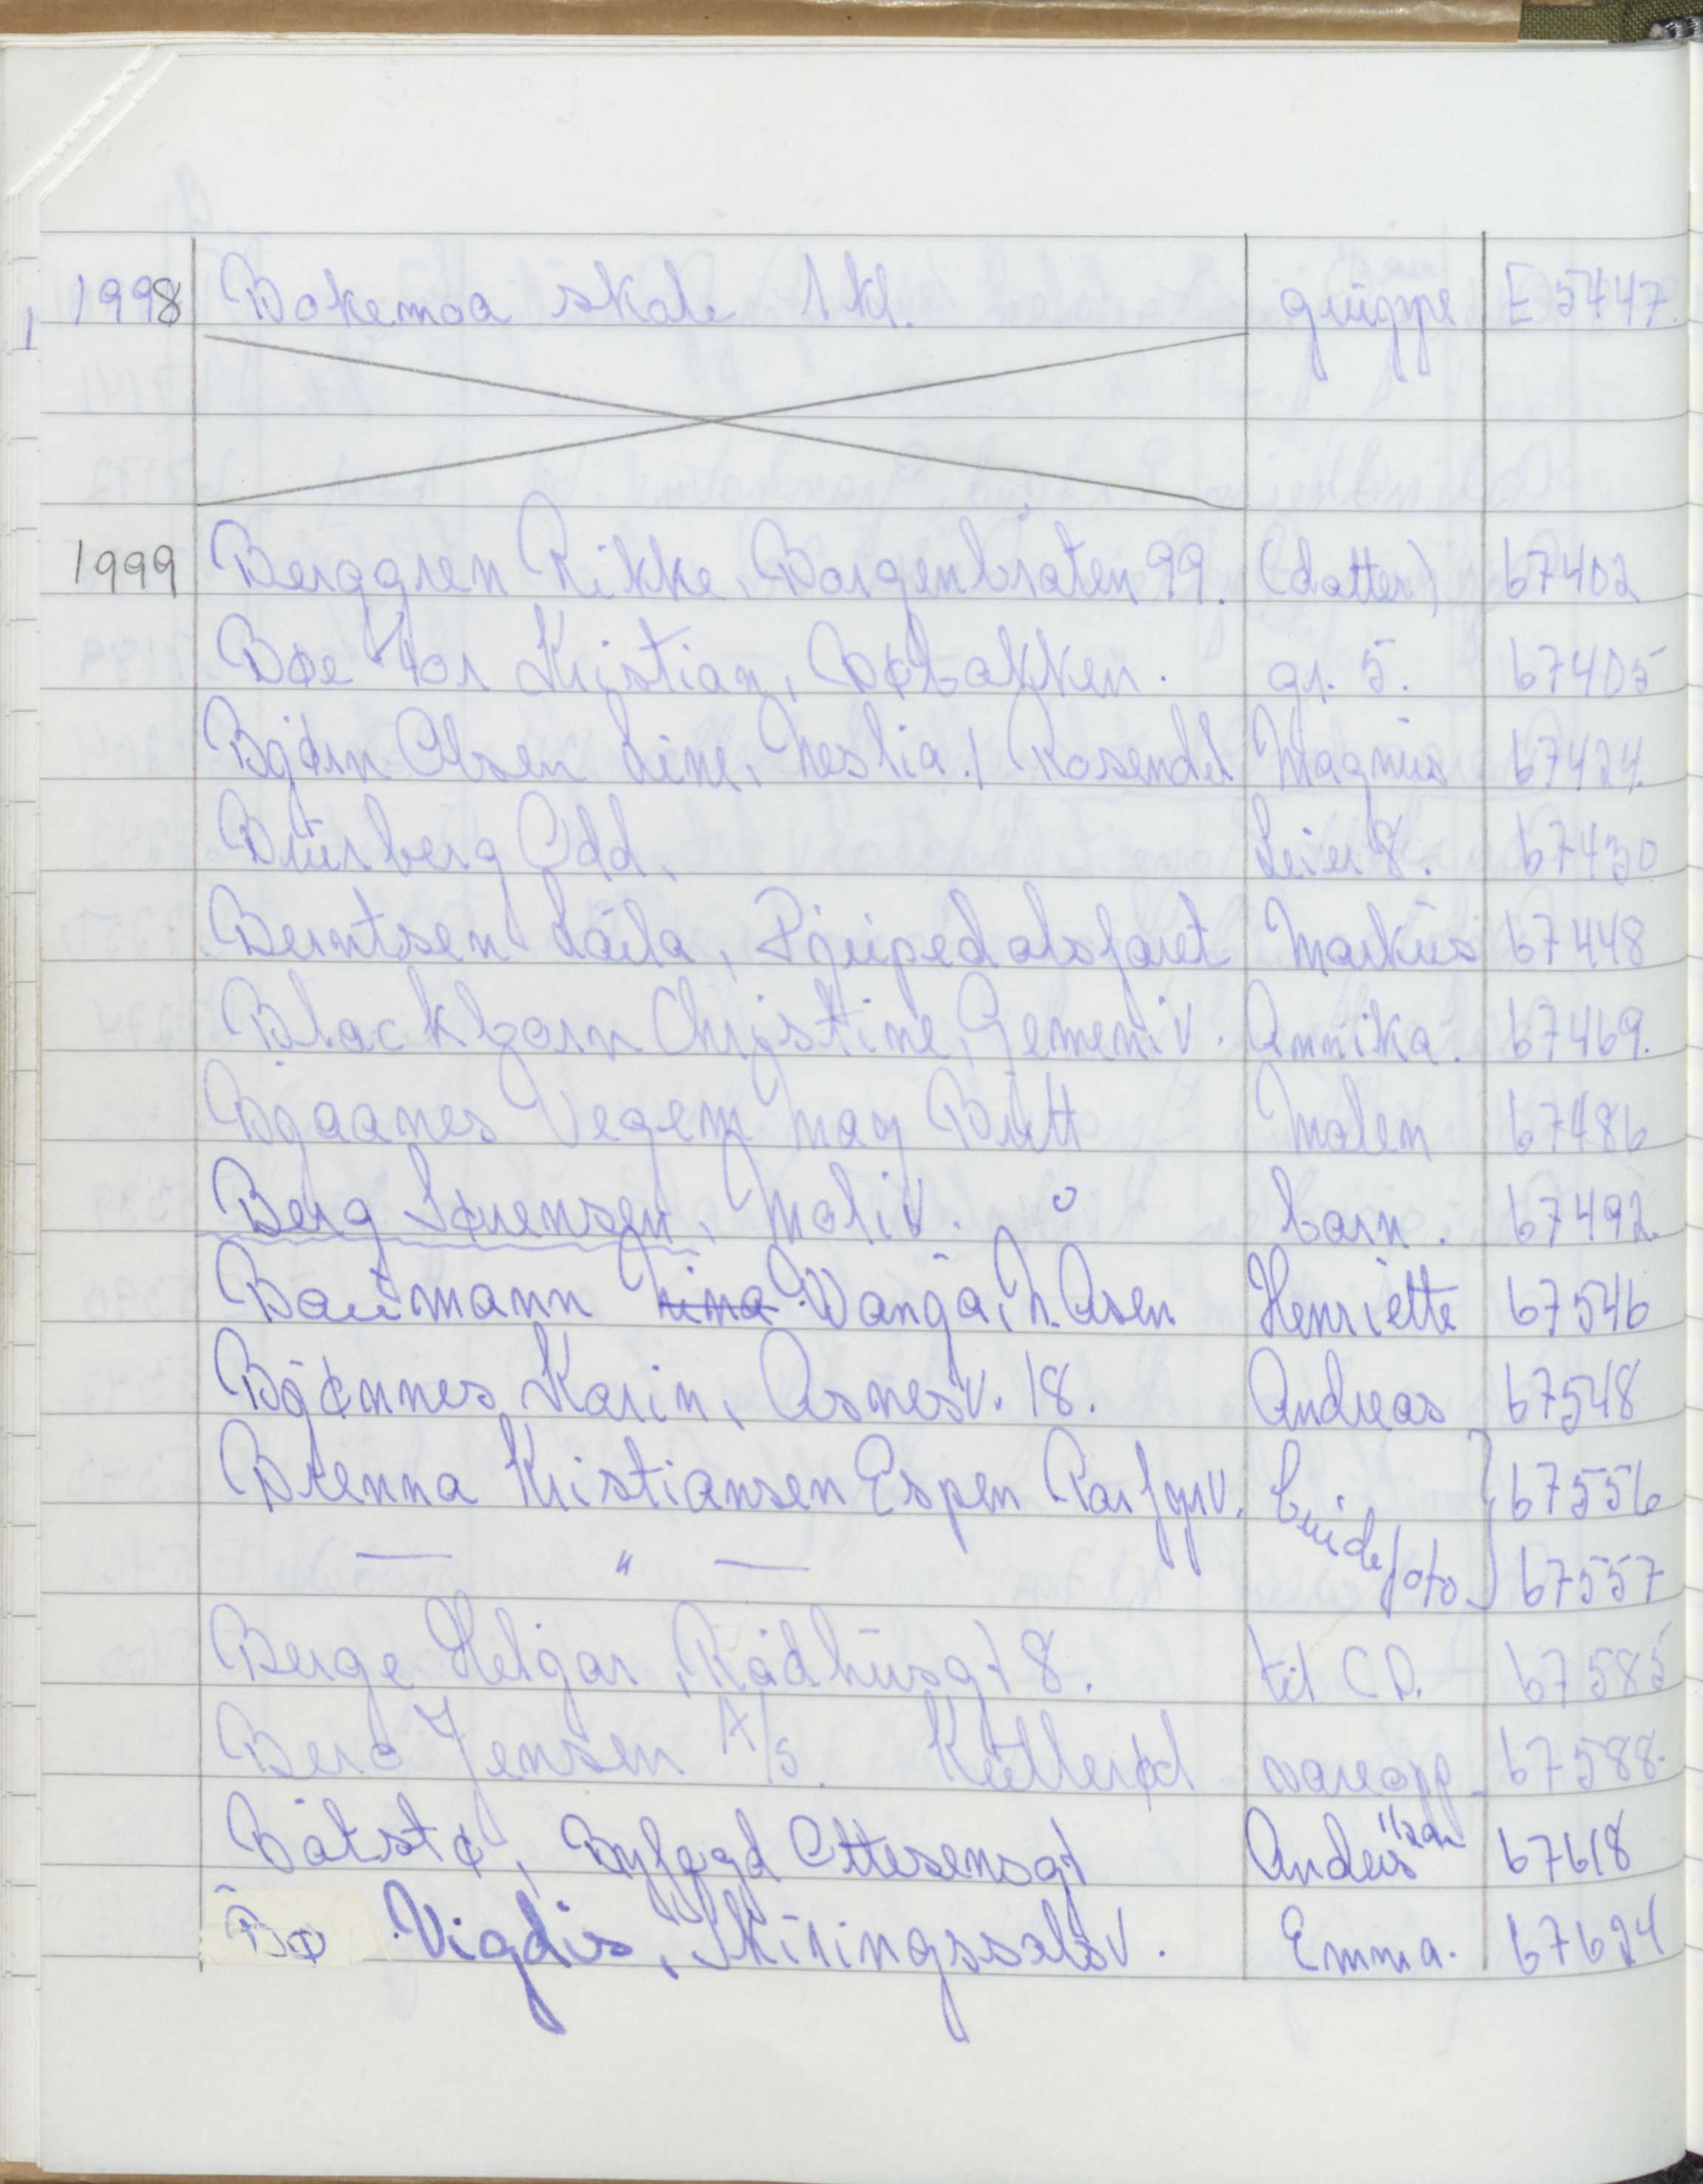 1998 Bokemoa skole 1 kl. gruppe E 5447.
1999 Berggren Rikke, Borgenbråten 99. (datter) 67402
Bøe Tor Kristian, Bøbakken. gr. 5. 67405
Bjørn Olsen Line, Neslia. / Rosendal Magnus 67424.
Buerberg Odd, Leier 8. 67430
Berntsen Laila, Pjuipedalsfaret Markus 67448
Blackborn Christine, Gemeniv. Annika. 67469.
Bjaanes Vegem May Britt Malen 67486
Berg Sørensen, Moliv. barn. 67492.
Baumann Nina Wanja, N. Åsen Henriette 67546
Bjønnes Karin, Åsnesv. 18. Andreas 67548
Brenna Kristiansen Espen Parfyrv. brudefoto 67556
— " — 67557
Berge Helgar, Rådhusgt 8. til C.D. 67585
Berg Jensen A/S. Kullerød vareopp. 67588.
Båtstø, Bylagd Ottesensgt Andrus 1/2 år 67618
Bø Vigdis, Skiringssalsv. Emma. 67624